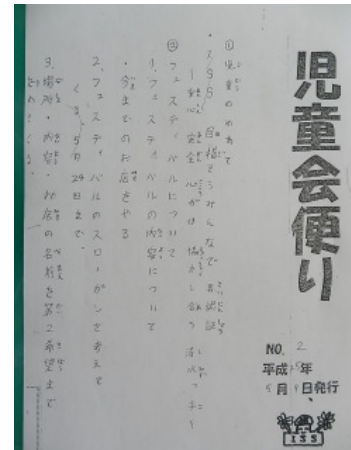 児童会便り
NO. 2
平成25年
5月9日発行
ISS
①児童会のめあて
・ISS 目標 みんなで 再認証
－安心 安全 心がけ 協力し合う 清水っ子－
②フェスティバルについて
1、フェスティバルの内容について
・今までのお店をやる
2、フェスティバルのスローガンを考えて
くる。5月24日まで。
3、場所・内容・お店の名前を第2希望まで
きめてくる。